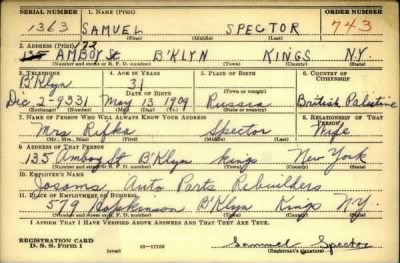 SERIAL NUMBER 1. NAME (Print) ORDER NUMBER
1363 SAMUEL SPECTOR 743
(First) (Middle) (Last)
2. ADDRESS (Print) 172
135 AMBOY St B'KLYN KINGS N.Y.
(Number and street or R. F. D. number) (Town) (County) (State)
3. TELEPHONE 4. AGE IN YEARS 5. PLACE OF BIRTH 6. COUNTRY OF CITIZENSHIP
B'Klyn 31
DATE OF BIRTH (Town or county)
Dic 2-9331 May 13 1909 Russia British Palestine
(Exchange) (Number) (Mo.) (Day) (Yr.) (State or country)
7. NAME OF PERSON WHO WILL ALWAYS KNOW YOUR ADDRESS 8. RELATIONSHIP OF THAT PERSON
Mrs Rifka Spector Wife
(Mr., Mrs., Miss) (First) (Middle) (Last)
9. ADDRESS OF THAT PERSON
135 Amboy St B'Klyn Kings New York
(Number and street or R. F. D. number) (Town) (County) (State)
10. EMPLOYER'S NAME
Josams Auto Parts Rebuilders
11. PLACE OF EMPLOYMENT OR BUSINESS
579 Hopkinson B'Klyn Kings N.Y.
(Number and street or R. F. D. number) (Town) (County) (State)
I AFFIRM THAT I HAVE VERIFIED ABOVE ANSWERS AND THAT THEY ARE TRUE.
REGISTRATION CARD
D. S. S. Form 1 (over) 16-17105 Samuel Spector
(Registrant's signature)